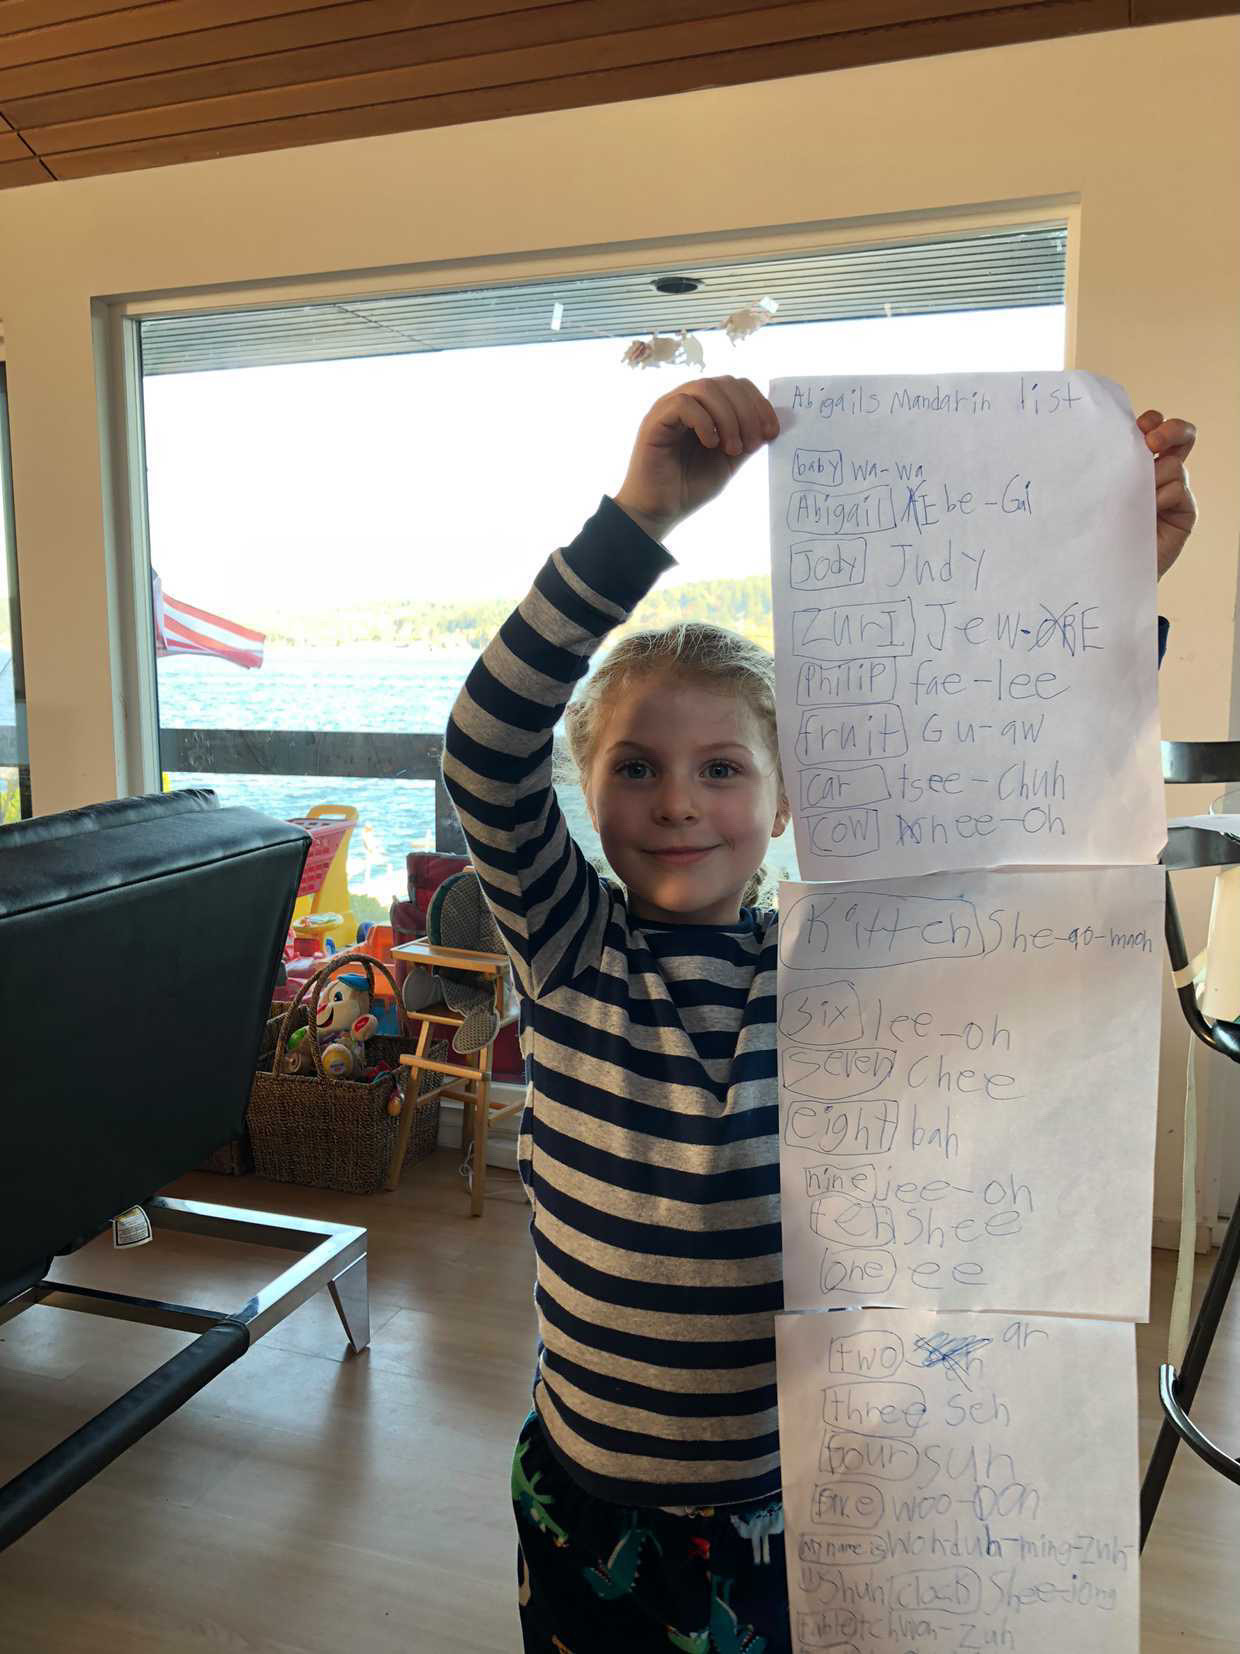 Abigails Mandarin list
baby wa-wa
Abigail E be-Gai
Jody Judy
ZurI Jew-E
Philip fae-lee
fruit Gu-aw
car tsee-chuh
cow nee-oh
Kitten She-ao-maoh
six lee-oh
seven Chee
eight bah
nine jee-oh
ten Shee
one ee
two ar
three Seh
four sun
five woo-ooh
my name is Woh-duh-ming-zuh-
Shuh clock Shee-jong
table tchwoh-zuh